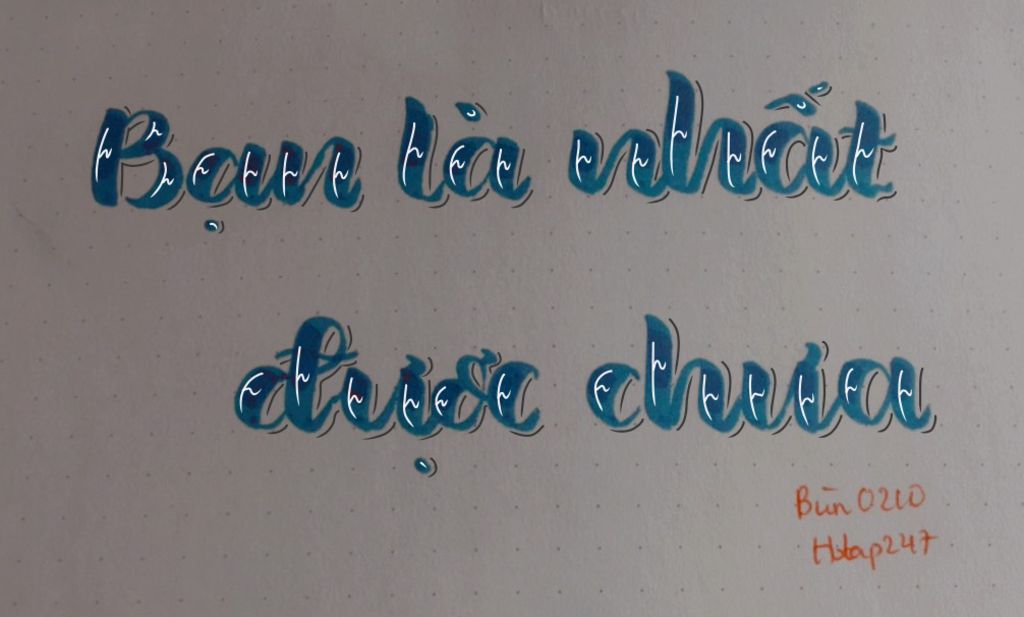 Bạn là nhất
được chưa
Bún 0210
Hotap247